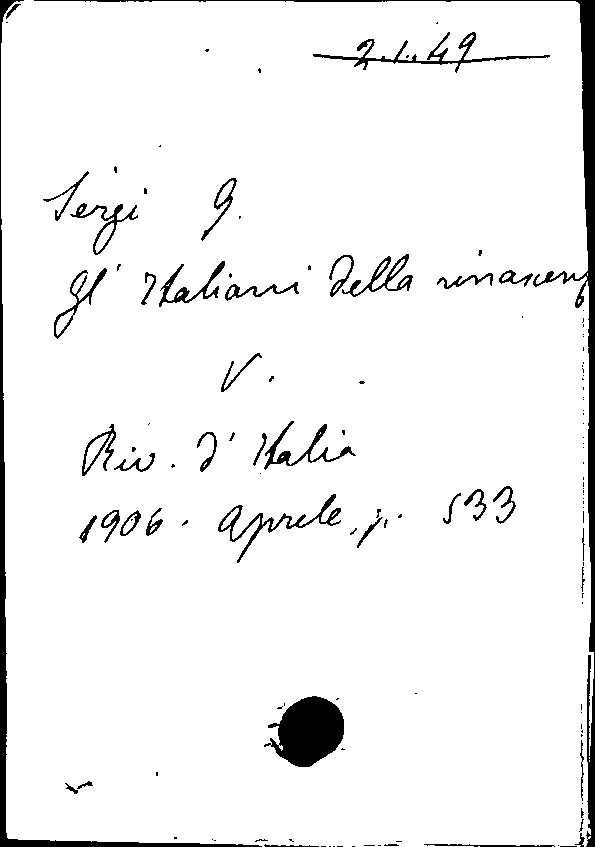 2.1.49
Sergi G.
Gl' Italiani della rinascenz
V.
Riv. d' Italia
1906. Aprile, p. 533